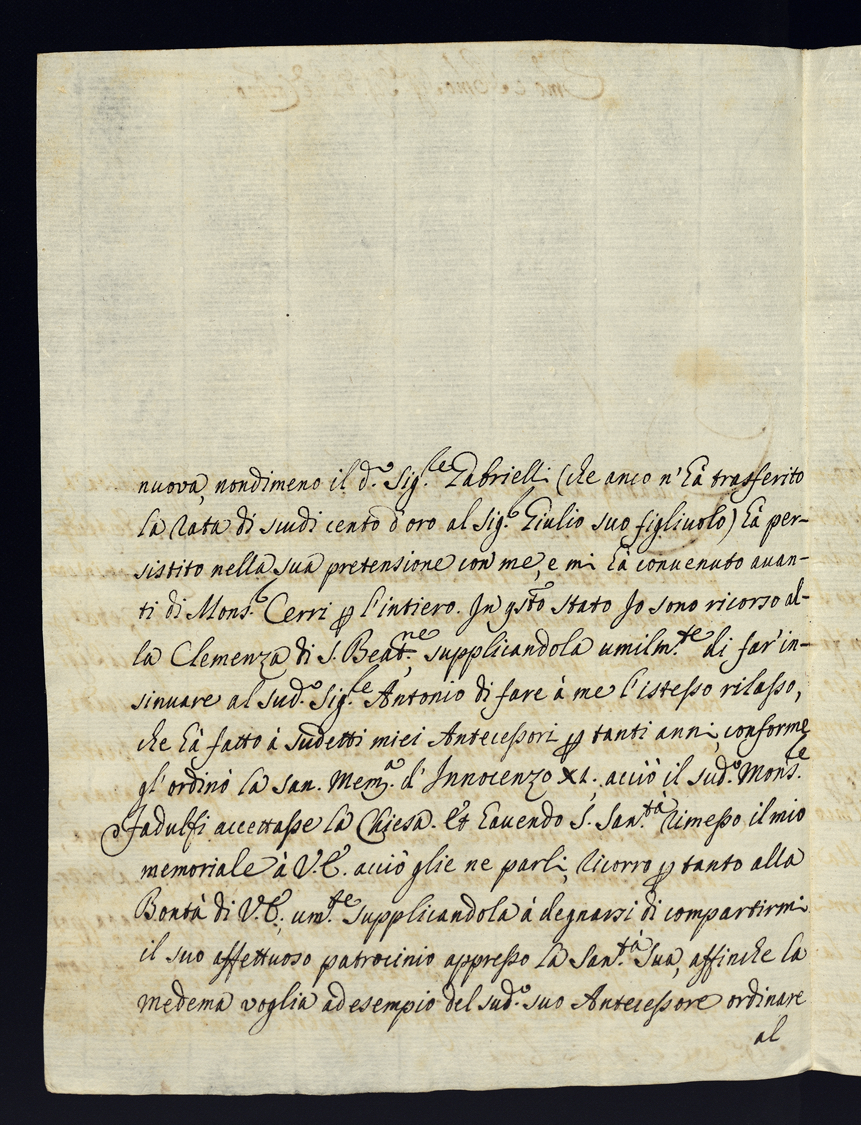 nuova, nondimeno il d.º Sig.le Gabrielli (che anco n'hà trasferito
la rata di scudi cento d'oro al Sig.e Giulio suo figliuolo) hà per-
sistito nella sua pretensione con me, e mi hà convenuto avan-
ti di Mons.e Cerri p l'intiero. In gsto stato Io sono ricorso al-
la Clemenza di S. Beat.ne supplicandola umilm.te di far'in-
sinuare al sud.º Sig.le Antonio di fare à me l'istesso rilasso,
che hà fatto à sudetti miei Antecessori p tanti anni, conforme
gl'ordinò la san. Mem.a d'Innocenzo XI. acciò il sud.º Mons.le
accettasse la Chiesa. Et havendo S. San.tà rimesso il mio
memoriale à V.E. acciò glie ne parli, ricorro p tanto alla
Bontà di V.E. um.te supplicandola à degnarsi di compartirmi
il suo affettuoso patrocinio appresso la San.tà Sua, affinche la
medema voglia ad esempio del sud.º suo Antecessore ordinare
al